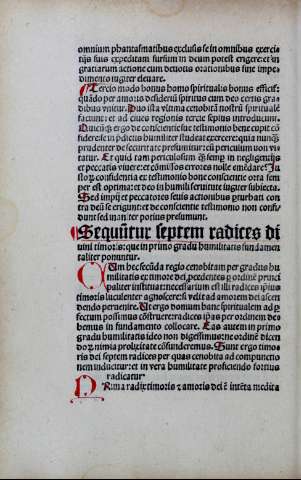 omnium phantasmatibus exclusis se in omnibus exerci
tijs suis expeditam sursum in deum potest erigere: et in
gratiarum actione cum deuotis orationibus sine impe
dimento iugiter eleuare.
Tercio modo bonus homo spiritualis bonus efficit̃:
quãdo per amoris desideriũ spiritus eum deo eterno gra
dibus vnitur. Duo ista vltima cenobitã nostrũ spiritualẽ
faciunt: et ad ciues regionis tercie sepius introducunt.
Quicũq̃ ergo de conscientie sue testimonio bene cepit cõ
fidere: se in pdictis humiliter studeat exercere: quia nunq̃
prudenter de securitate presumitur: cũ periculum non vi
tatur. Et quid tam periculosum q̃ semp in negligentijs
et peccatis viuere: et cõmissos errores nolle emẽdare? In
hoc cõfidentia et testimonio bone conscientie ora sem
per est optima: et deo in humili seruitute iugiter subiecta.
Sed impij et peccatores suis actionibus pturbati con
tra deũ se erigunt: et de conscientie testimonio non confi
dunt sed inaniter potius presumunt.
Sequũtur septem radices di
uini timoris: que in primo gradu humilitatis fundamen
taliter ponuntur.
Cum hec secũda regio cenobitam per gradus hu
militatis et timore dei pcedentes et ordine princi
paliter instituat: necessarium est illi radices ipius
timoris luculenter agnoscere: si velit ad amorem dei ascen
dendo peruenire. Ut ergo domum hanc spiritualem ad per
fectum possimus cõstruere: radices ipãs per ordinem de
bemus in fundamento collocare. Eas autem in primo
gradu humilitatis ideo non digessimus: ne ordinẽ dicen
do et nimia prolixitate cõfunderemus. Sunt ergo timo
ris dei septem radices per quas cenobita ad compunctio
nem inducitur: et in vera humilitate proficiendo fortius
radicatur
Prima radix timoris et amoris dei ẽ intẽta medita